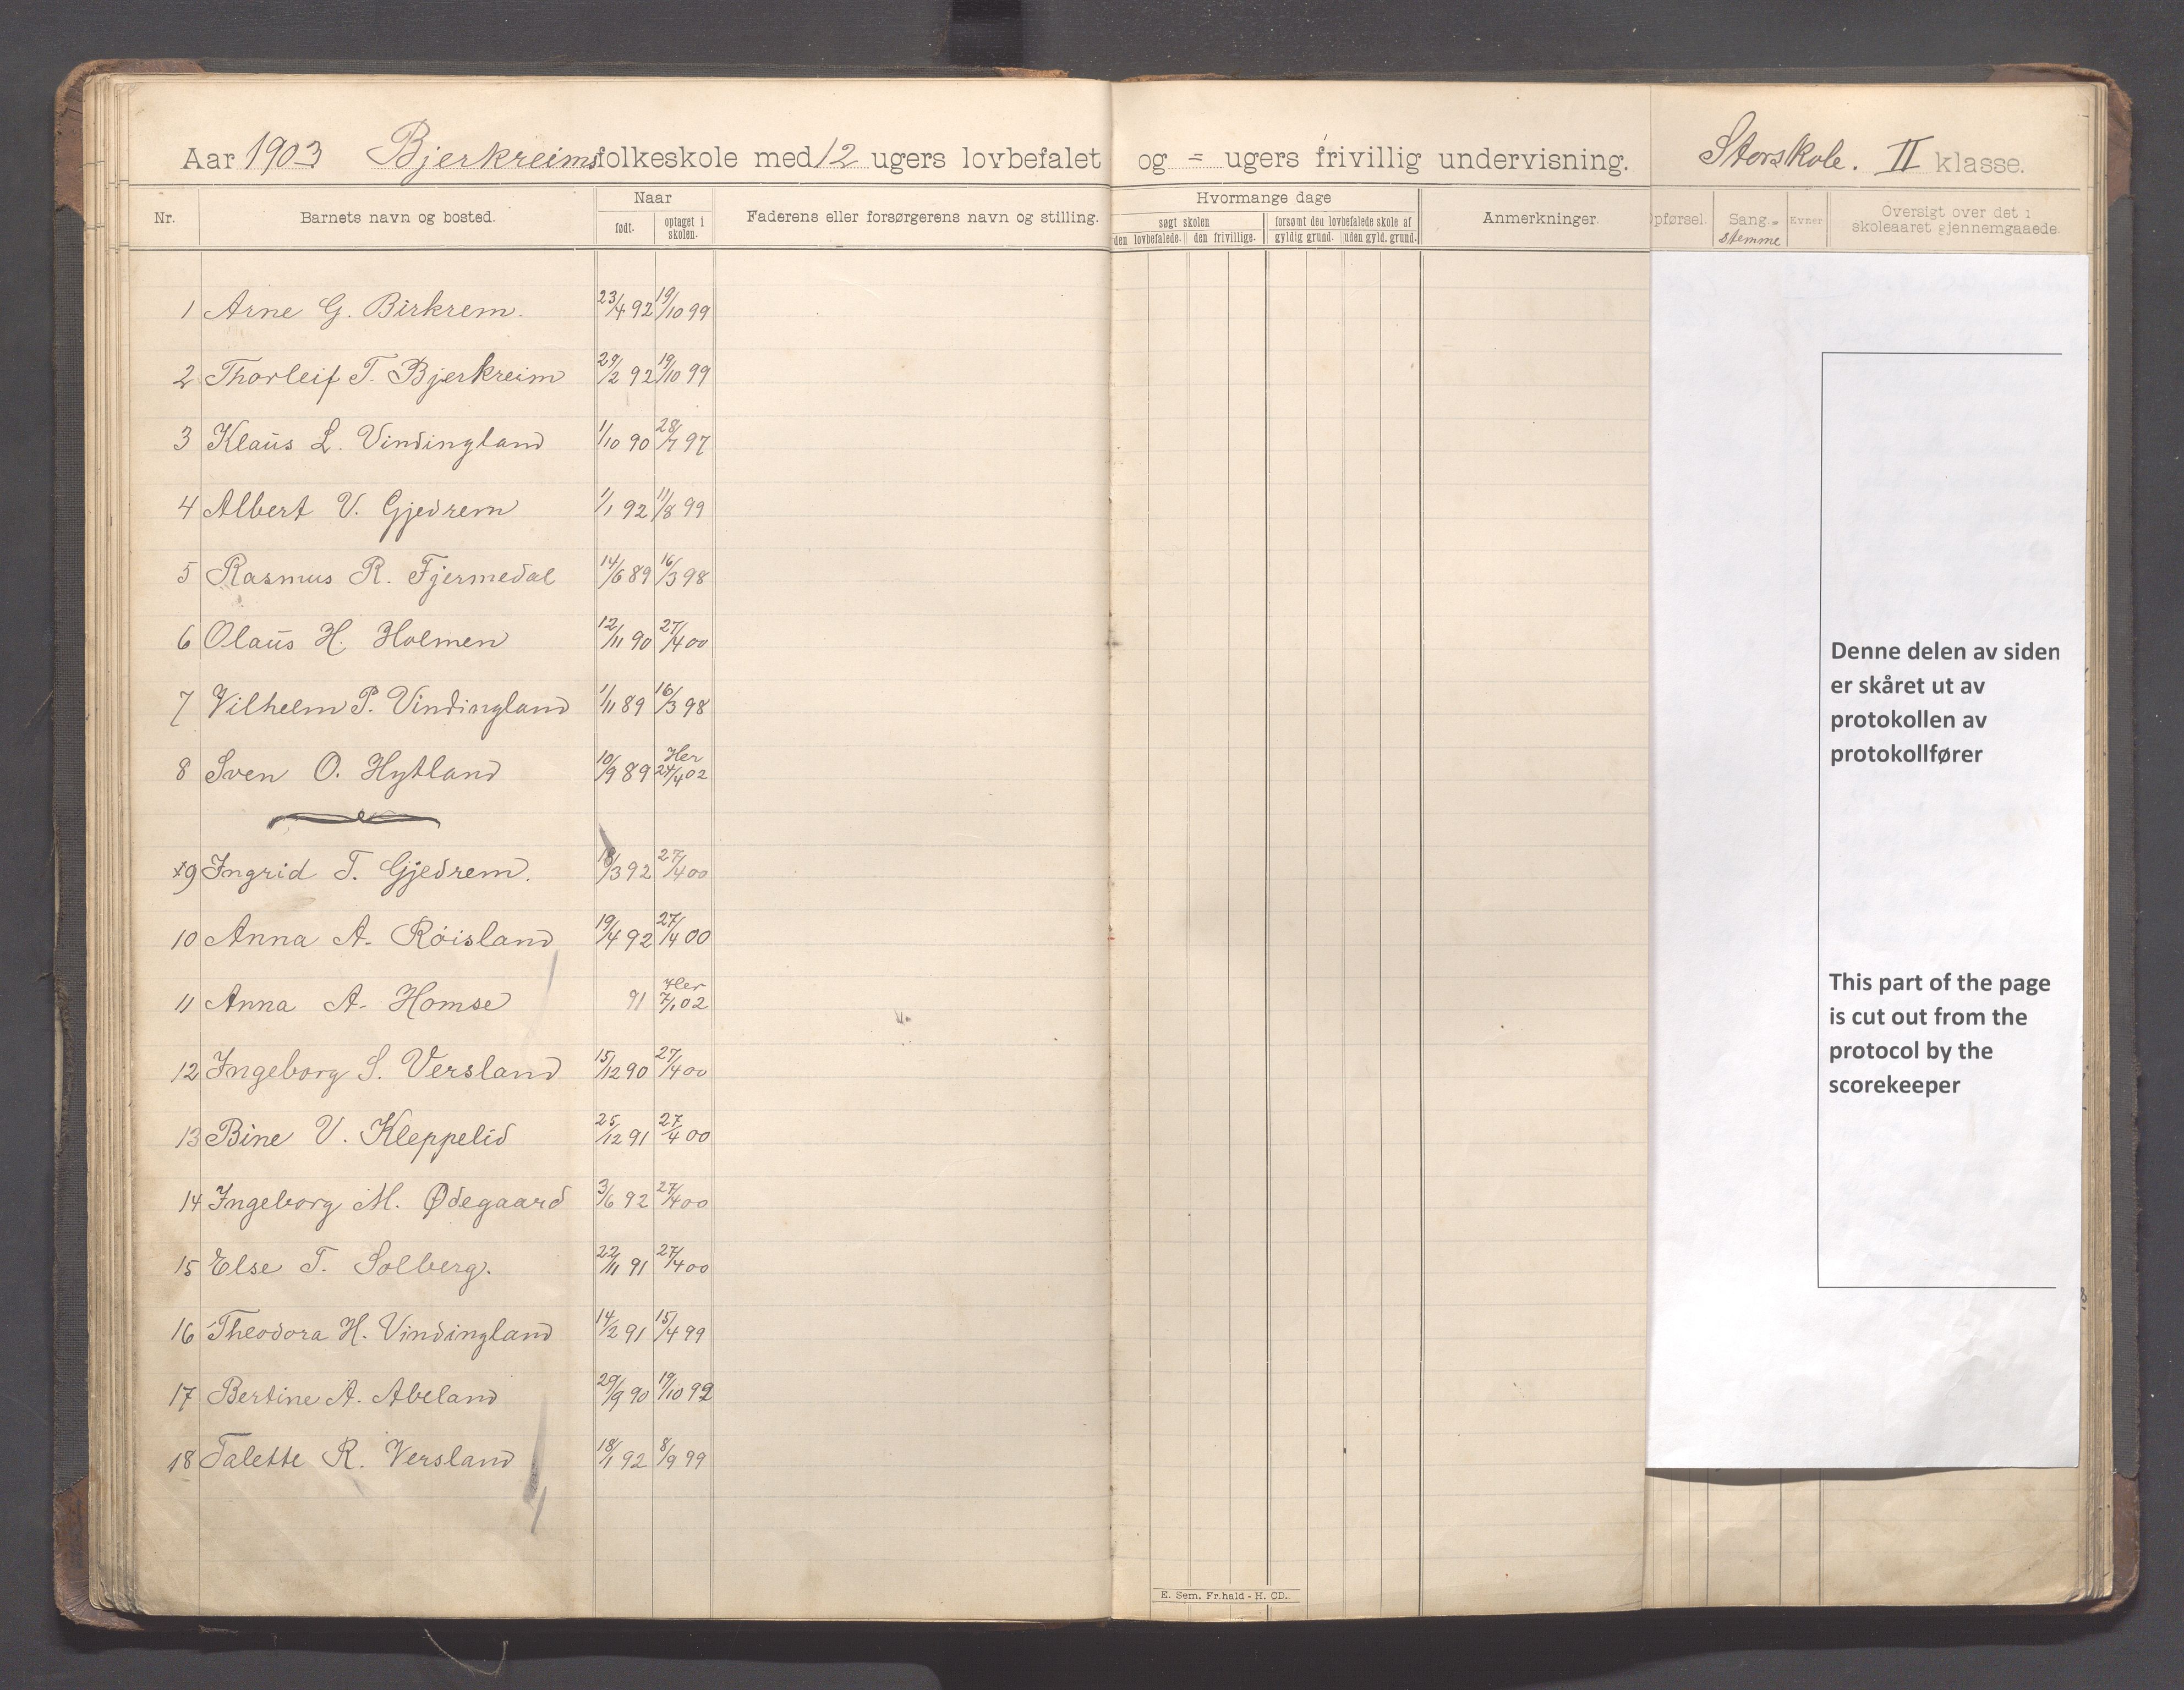 Aar 1903 Bjerkreims folkeskole med 12 ugers lovbefalet og = ugers frivillig undervisning. Storskole. II klasse.
Nr. Barnets navn og bosted. Naar født. optaget i skolen. Faderens eller forsørgerens navn og stilling. Hvormange dage søgt skolen den lovbefalede. den frivillige. forsømt den lovbefalede skole af gyldig grund. uden gyld. grund. Anmerkninger. Opførsel. Sang.= stemme Evner Oversigt over det i skoleaaret gjennemgaaede.
1 Arne G. Birkrem. 23/4 92 19/10 99
2 Thorleif T. Bjerkreim 29/2 92 19/10 99
3 Klaus L. Vindingland 1/10 90 28/7 97
4 Albert V. Gjedrem 1/1 92 11/8 99
5 Rasmus R. Fjermedal 14/6 89 16/3 98
6 Olaus H. Holmen 12/11 90 27/4 00
7 Vilhelm P. Vindingland 1/11 89 16/3 98
8 Sven O. Hytland 10/9 89 Her 24/4 02
x9 Ingrid T. Gjedrem. 18/3 92 27/4 00
10 Anna A. Röisland 19/4 92 27/4 00
11 Anna A. Homse 91 Her 7/1 02
12 Ingeborg S. Versland 15/12 90 27/4 00
13 Bine V. Kleppelid 25/12 91 27/4 00
14 Ingeborg M. Ødegaard 3/6 92 27/4 00
15 Else T. Solberg. 22/11 91 27/4 00
16 Theodora H. Vindingland 14/2 91 15/4 99
17 Bertine A. Abeland 29/9 90 19/10 99
18 Talette R. Versland 18/1 92 8/9 99
E. Sem. Fr.hald - H. CD.
Denne delen av siden
er skåret ut av
protokollen av
protokollfører
This part of the page
is cut out from the
protocol by the
scorekeeper